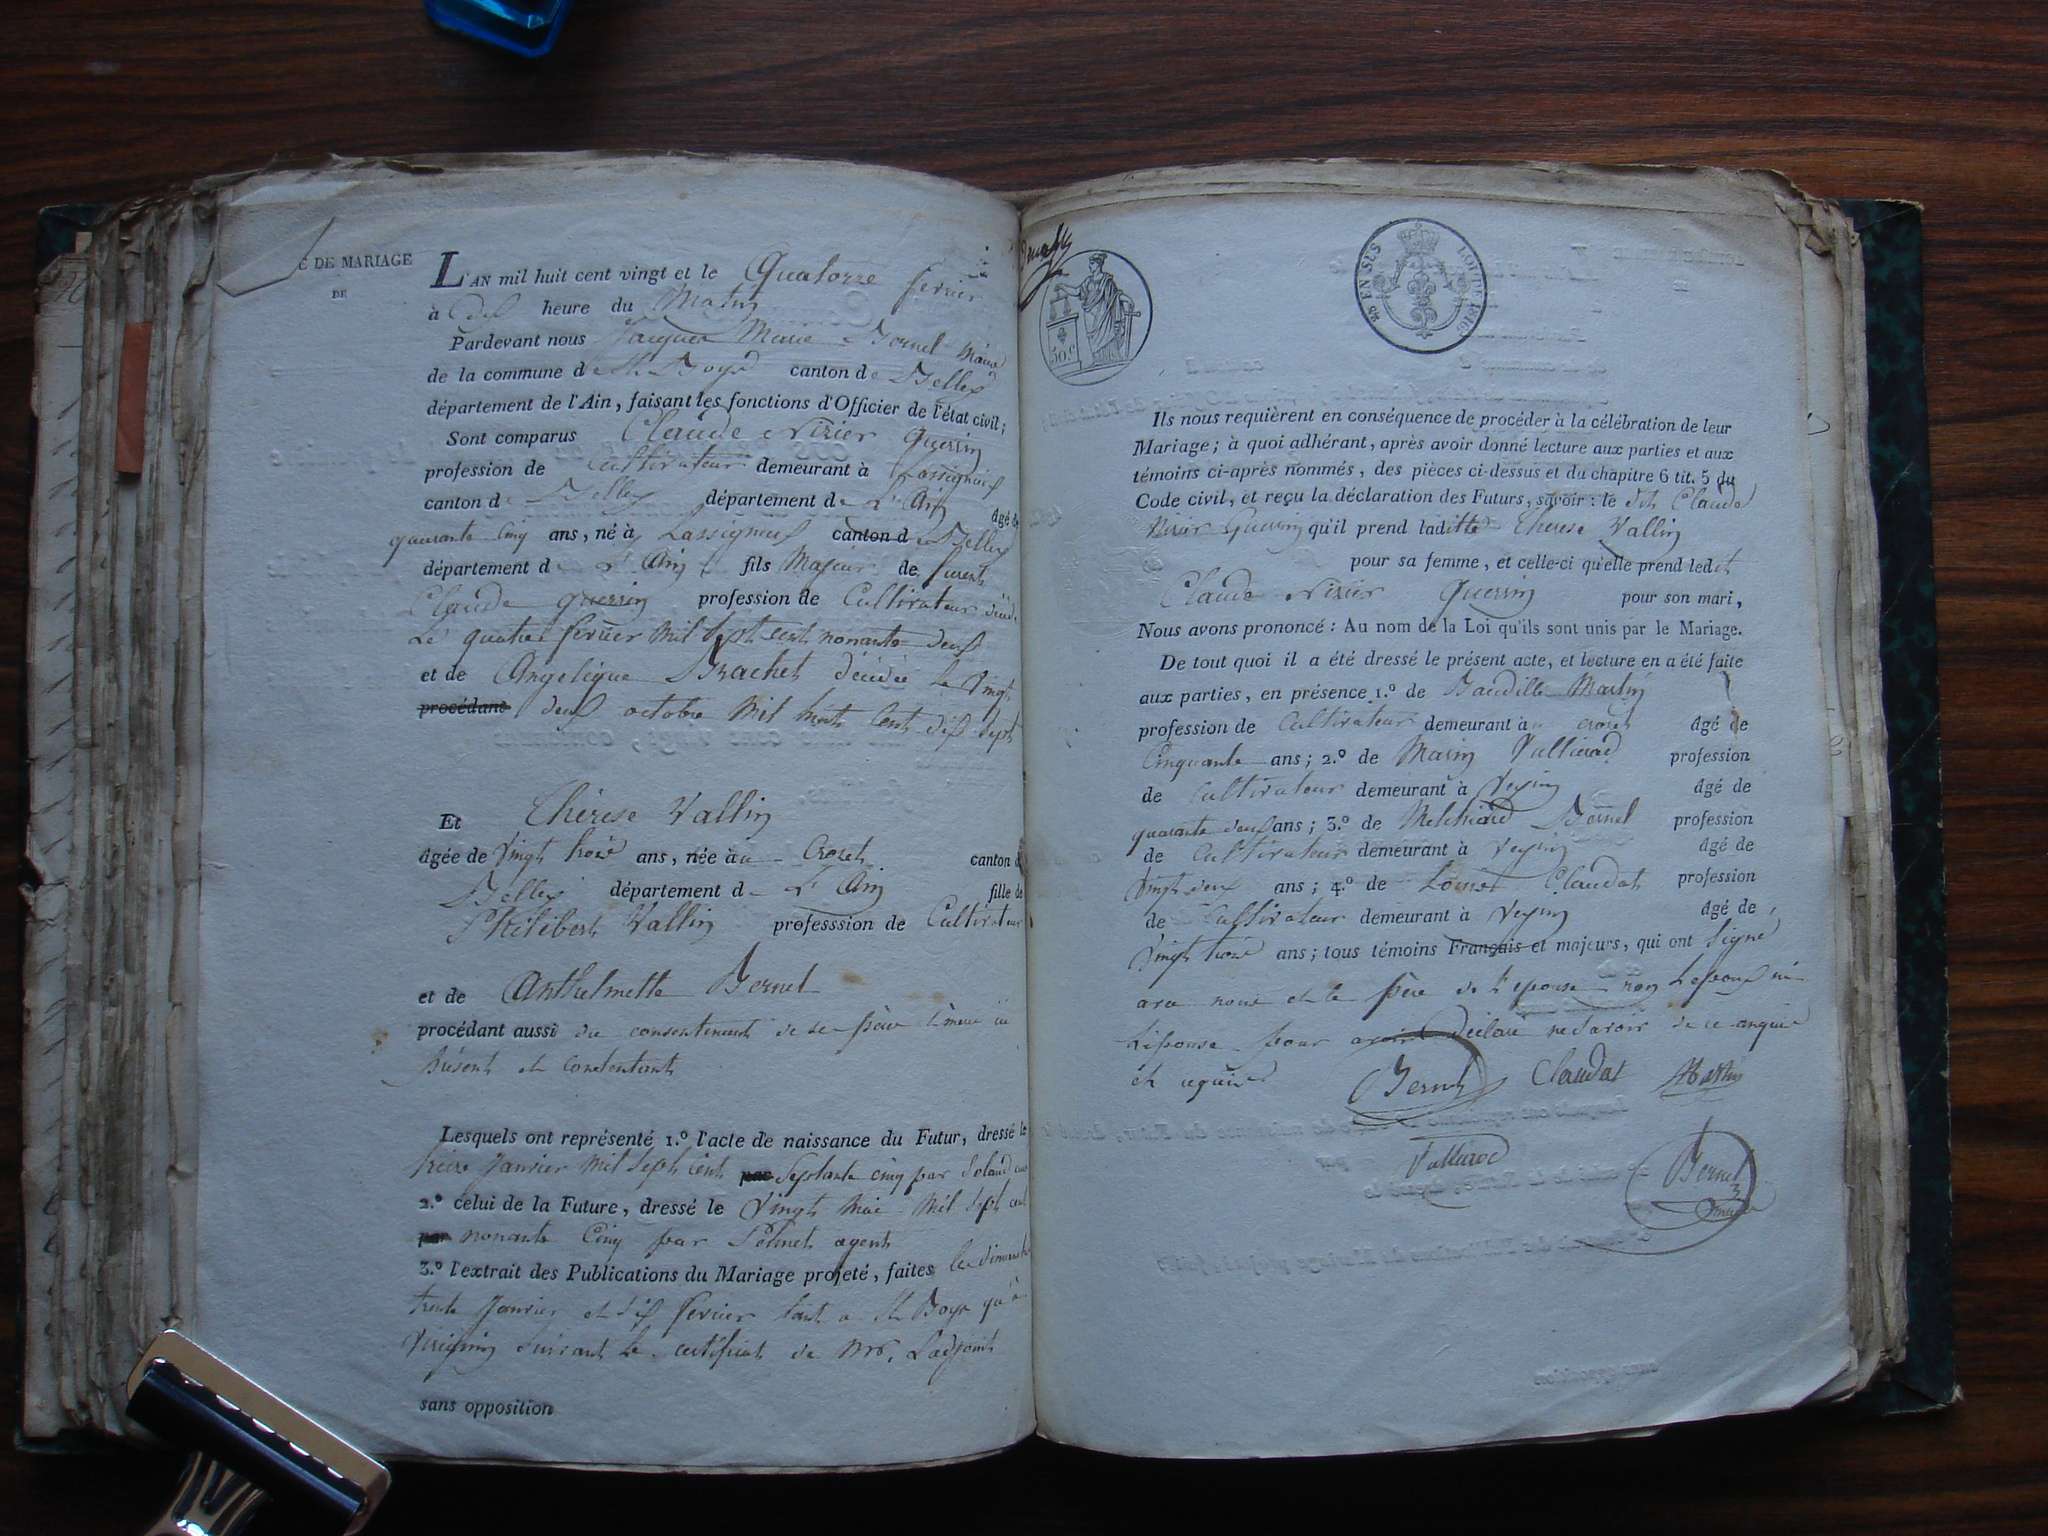 E DE MARIAGE
DE
L'AN mil huit cent vingt et le Quatorze fevrier
à dix heure du Matin
Pardevant nous Jacques Marie Bornel Maire
de la commune de St Boys canton de Belley
département de l'Ain, faisant les fonctions d'Officier de l'état civil;
Sont comparus Claude Nizier Guerrin
profession de Cultivateur demeurant à Lassignieu
canton de Belley département de L'Ain âgé de
quarante Cinq ans, né à Lassignieu canton de Belley
département de L'Ain fils Majeur de
Claude Guerrin profession de Cultivateur
Le quatre fevrier mil sept cent nonante deux
et de Angelique Brachet décédée le vingt
procédant deux octobre Mil huit Cent dix sept
Et Thérèse Vallin
âgée de vingt trois ans, née au Crozet canton d
Belley département de L'Ain fille de
Philibert Vallin professsion de Cultivateur
et de Anthelmette Bernet
procédant aussi du consentement de ses père & mere ici
présents et consentants
Lesquels ont représenté 1.º l'acte de naissance du Futur, dressé le
treize Janvier Mil Sept cent par Septante cinq par
2.º celui de la Future, dressé le vingt Mai Mil Sept cent
par nonante Cinq par agent
3.º l'extrait des Publications du Mariage projeté, faites les dimanches
trente Janvier et six fevrier tant a St Boys qu'à
Virignin suivant le certificat de Mr. L'adjoint
sans opposition
50 c
25 EN SUS
LOI DE 1816
Ils nous requièrent en conséquence de procéder à la célébration de leur
Mariage; à quoi adhérant, après avoir donné lecture aux parties et aux
témoins ci-après nommés, des pièces ci-dessus et du chapitre 6 tit. 5 du
Code civil, et reçu la déclaration des Futurs, savoir: le dit Claude
Nizier Guerrin qu'il prend laditte Thérèse Vallin
pour sa femme, et celle-ci qu'elle prend ledit
Claude Nizier Guerrin pour son mari,
Nous avons prononcé: Au nom de la Loi qu'ils sont unis par le Mariage.
De tout quoi il a été dressé le présent acte, et lecture en a été faite
aux parties, en présence 1.º de Baudille Martin
profession de Cultivateur demeurant au crozet âgé de
Cinquante ans; 2.º de Marin Vallierod profession
de Cultivateur demeurant à Veyrin âgé de
quarante deux ans; 3.º de Melchiord Bornel profession
de Cultivateur demeurant à Veyrin âgé de
vingt deux ans; 4.º de Louis Claudat profession
de Cultivateur demeurant à Veyrin âgé de
vingt trois ans; tous témoins Français et majeurs, qui ont Signé
avec nous et le père de l'epouse non L'epoux ni
L'épouse pour avoir déclaré ne savoir de ce enquis
et requis
Claudat Martin
Bernet